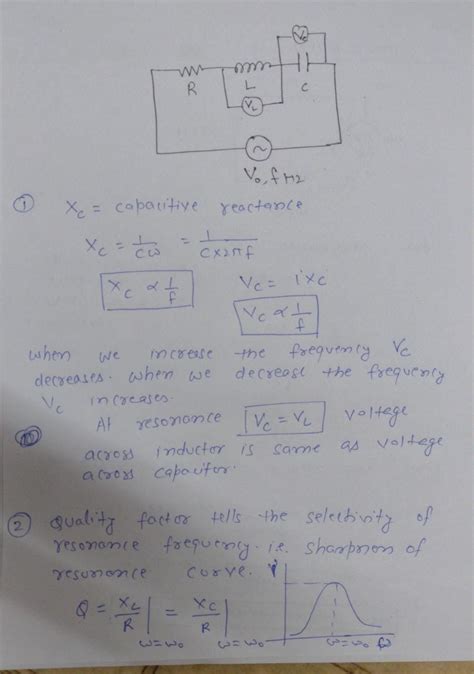 Vc
R
L
C
VL
V₀, f Hz
① Xc = capacitive reactance
Xc = 1/Cω = 1/C×2πf
Xc ∝ 1/f Vc = i Xc
Vc ∝ 1/f
when we increase the frequency Vc
decreases. when we decrease the frequency
Vc increases.
At resonance Vc = VL voltage
across inductor is same as voltage
across capacitor.
② Quality factor tells the selectivity of
resonance frequency. i.e. sharpness of
resonance curve.
Q = XL/R | ω=ω₀ = Xc/R | ω=ω₀
ω=ω₀